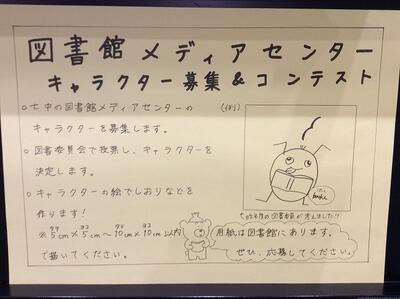 図書館メディアセンター
キャラクター募集&コンテスト
○七中の図書館メディアセンターの
キャラクターを募集します。
○図書委員会で投票し、キャラクターを
決定します。
○キャラクターの絵でしおりなどを
作ります!
※タテ5cm×ヨコ5cm〜タテ10cm×ヨコ10cm以内
で描いてください。
(例)
用紙は図書館にあります。
ぜひ、応募してください。